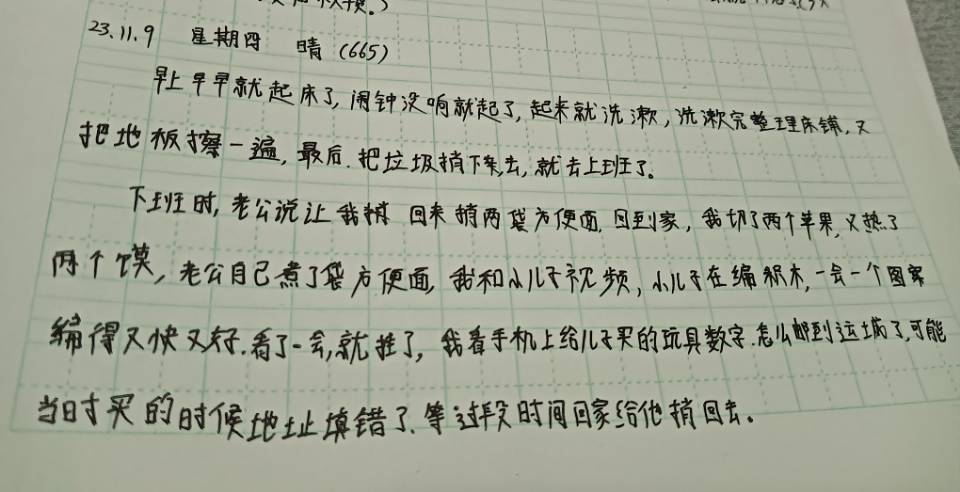 23.11.9 星期四 晴(665)
早上早早就起床了,闹钟没响就起了,起来就洗漱,洗漱完整理床铺,又
把地板擦一遍,最后.把垃圾捎下去,就去上班了。
下班时,老公说让我捎回来捎两袋方便面.回到家,我切了两个苹果,又热了
两个馍,老公自己煮了袋方便面,我和小儿子视频,小儿子在编积木,一会一个图案
编得又快又好.看了一会,就挂了,我看手机上给儿子买的玩具数字.怎么邮到运城了,可能
当时买的时候地址填错了.等过段时间回家给他捎回去。